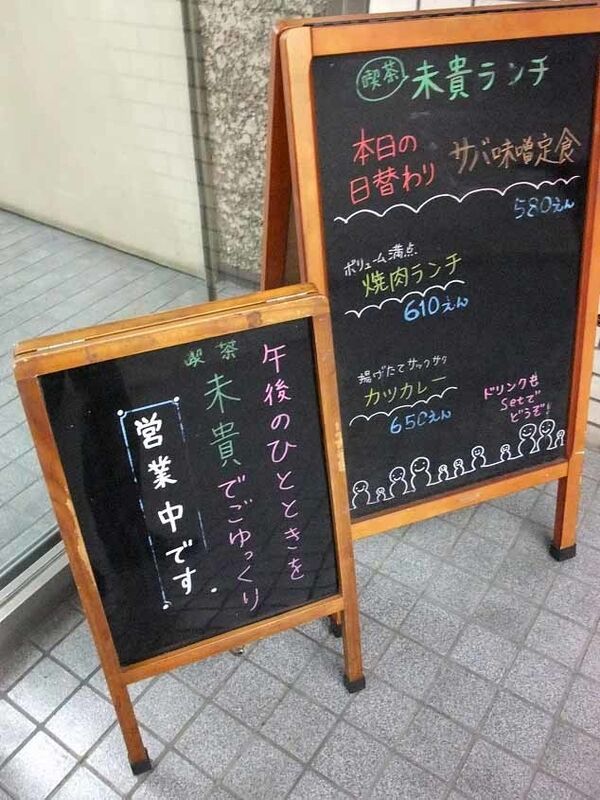 喫茶 未貴ランチ
本日の
日替わり
サバ味噌定食
580えん
ボリューム満点
焼肉ランチ
610えん
揚げたてサックサク
カツカレー
650えん
ドリンクも
Setで
どうぞ!
午後のひとときを
喫茶
未貴でごゆっくり
営業中です